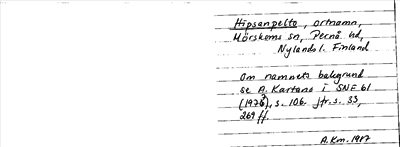 Hipsanpelto, ortnamn,
Mörskoms sn, Pernå hd,
Nylands l. Finland
Om namnets bakgrund
se A. Kartano i SNF 61
(1976), s. 106. jfr. s. 33,
269 ff.
A.Km. 1987